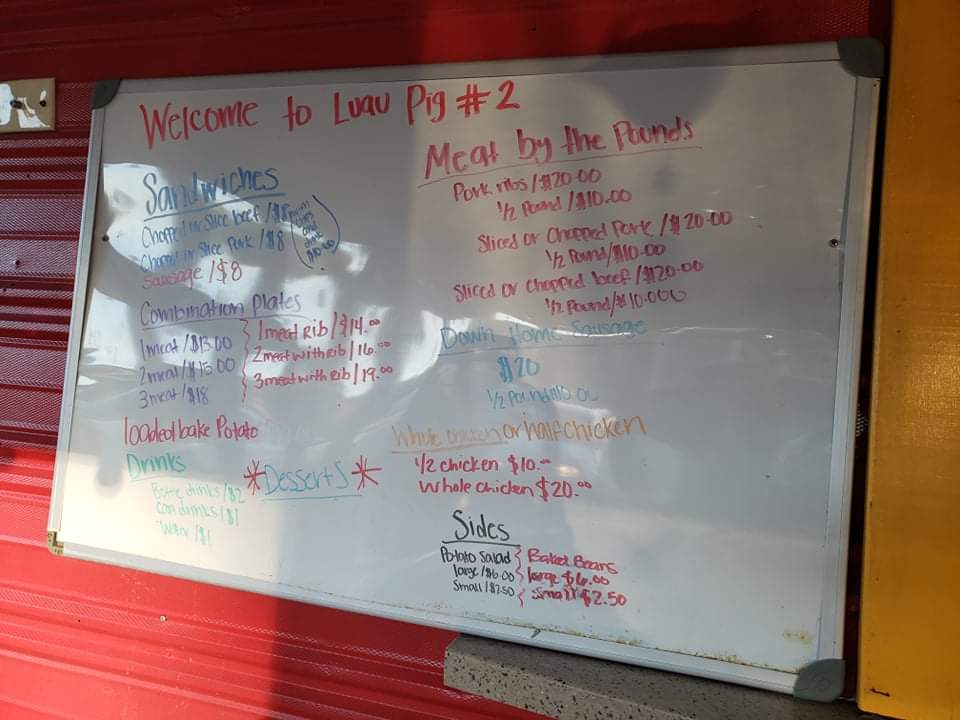 Welcome to Luau Pig #2
Sandwiches
Chopped or Slice beef /$8
Chopped or Slice Pork /$8
Sausage /$8
$10.00
Combination Plates
1 meat /$13.00
2 meat /$15.00
3 meat /$18
1 meat Rib /$14.00
2 meat with rib / 16.00
3 meat with Rib / 19.00
loaded bake Potato
Drinks
Bottle drinks /$2
Can drinks /$1
Water /$1
*Desserts*
Meat by the Pounds
Pork ribs /$20.00
1/2 Pound /$10.00
Sliced or Chopped Pork /$20.00
1/2 Pound/$10.00
Sliced or Chopped beef /$20.00
1/2 Pound/$10.000
Down Home Sausage
$20
1/2 Pound/$10.00
Whole chicken or half chicken
1/2 chicken $10.00
Whole chicken $20.00
Sides
Potato Salad
large /$6.00
Small /$2.50
Baked Beans
large $6.00
Small $2.50